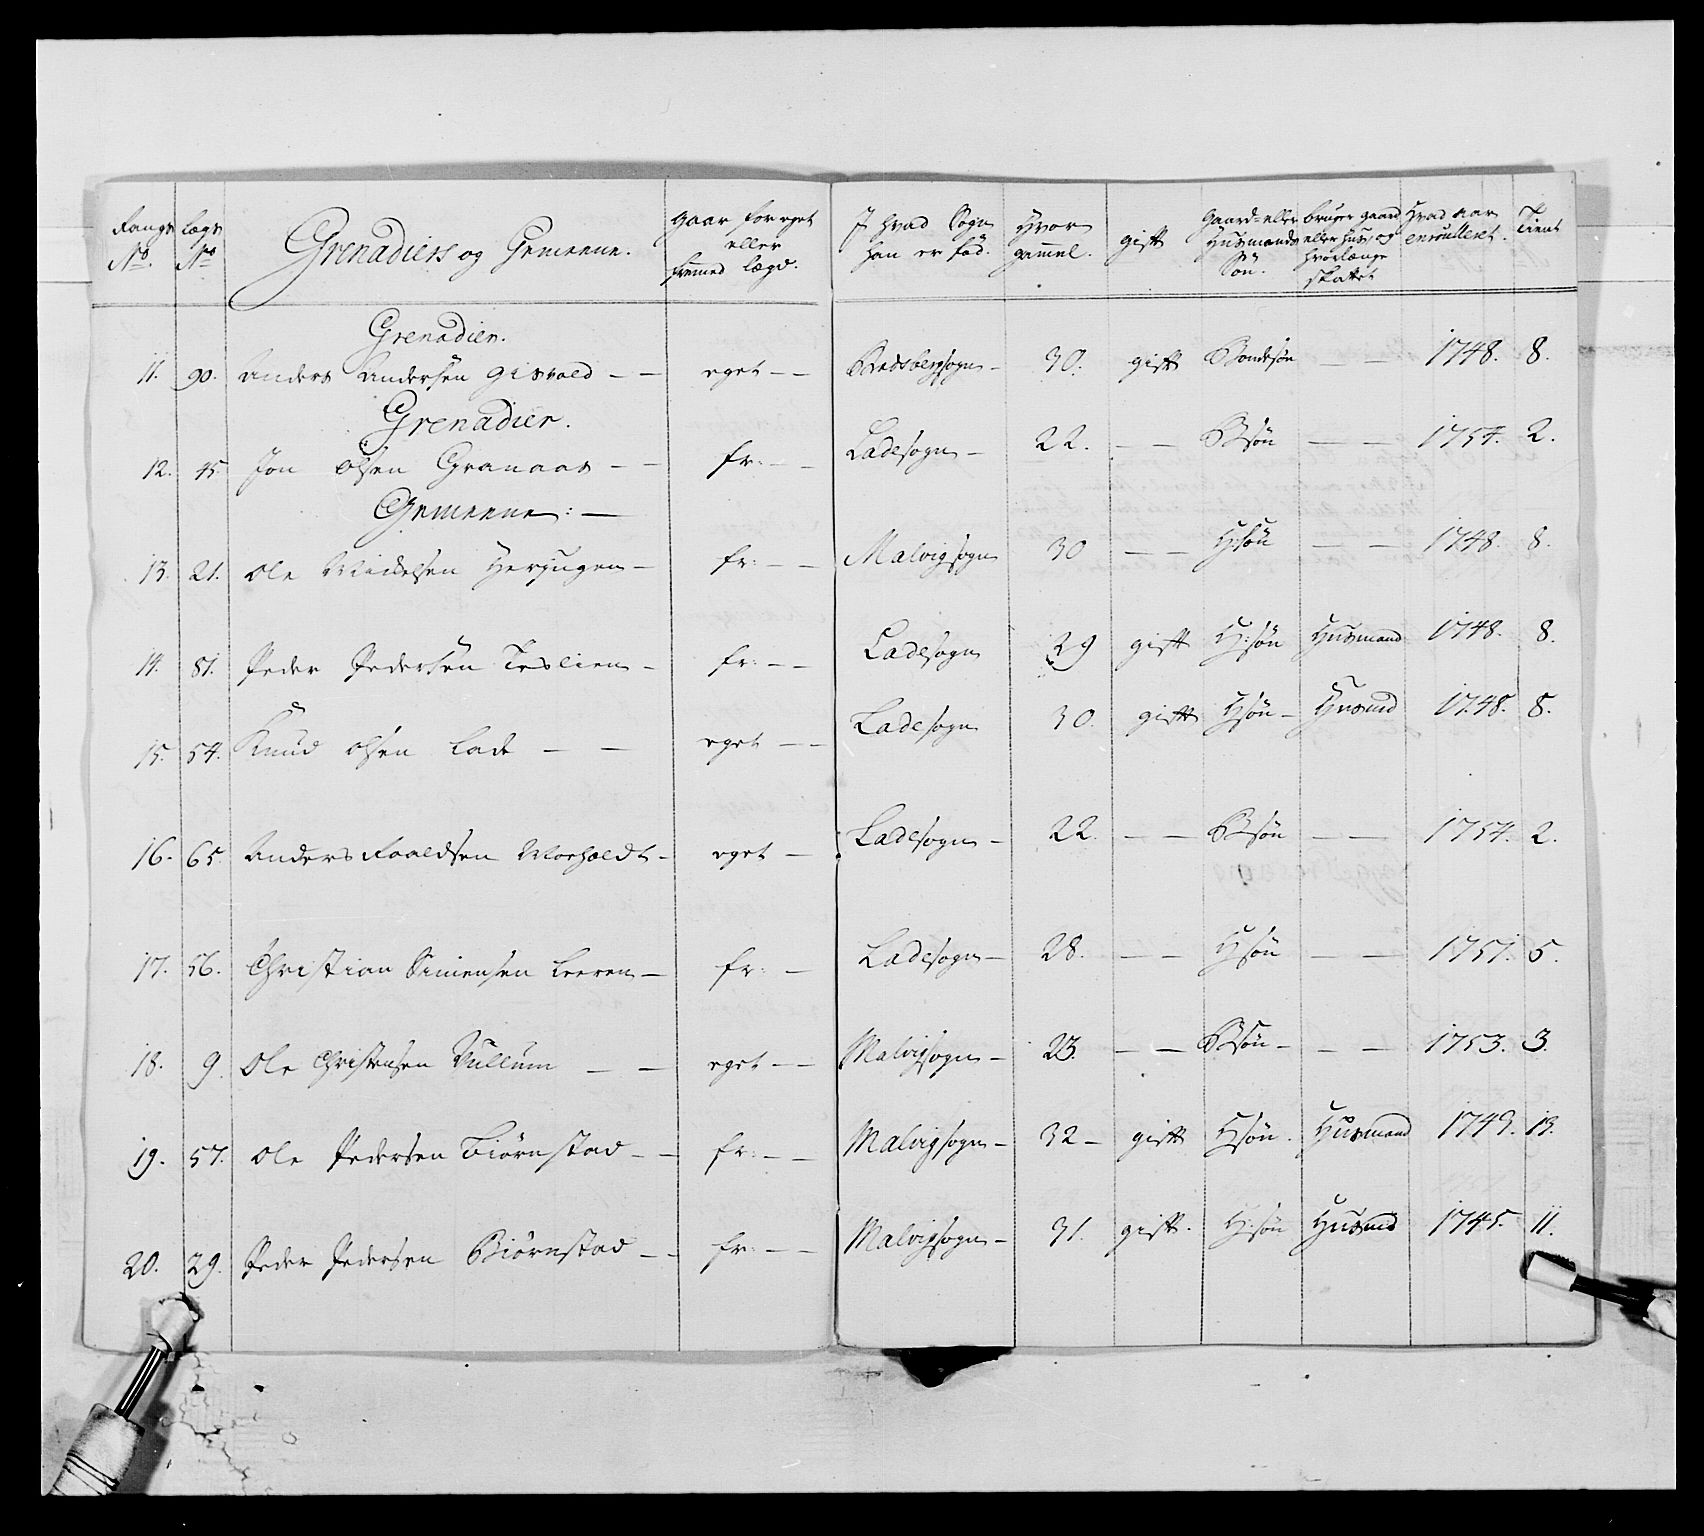 Rangs No. Lægs No Grenadiers og Gemeene. gaar for eget eller fremed lægd. J hvad Sogn han er föd. Hvor gammel. gift Gaard= eller Huusmands Sön. bruger gaard eller huus og hvorlænge skattet Hvad aar enroulleret. Tient
Grenadier.
11. 90. Anders Andersen Gisvold – – eget – – Bratsbergsogn – 30. gift Bondesøn – – 1748. 8.
Grenadier.
12. 45 Jon Olsen Granaas – – fr: – – Ladesogn – 22. – – B søn – – 1754. 2.
Gemeene: –
13. 21. Ole Michelsen – fr: – – Malvigsogn 30 – – H:søn – – 1748. 8.
14. 81. Peder Pedersen Teslien – fr: – – Ladesogn 29 gift H:søn Huusmand 1748. 8.
15. 54. Knud Olsen Lade – – eget – – Ladesogn 30. gift H søn – Huusmd 1748. 8.
16. 65. Anders – eget – Ladesogn – 22. – – B søn – – 1754. 2.
17. 56. Christian Simensen Leeren – fr: – Ladesogn – 28. – – H søn – – 1751. 5.
18. 9. Ole Christensen Vullum – – eget – – Malvigsogn – 23. – – B søn – – – 1753. 3.
19. 57. Ole Pedersen Biørnstad – – fr: – – Malvigsogn – 32 – gift H søn. Huusmand 1743. 13.
20. 29. Peder Pedersen Biørnstad – – fr: – – Malvigsogn – 31. gift. H:søn Huusmd 1745. 11.